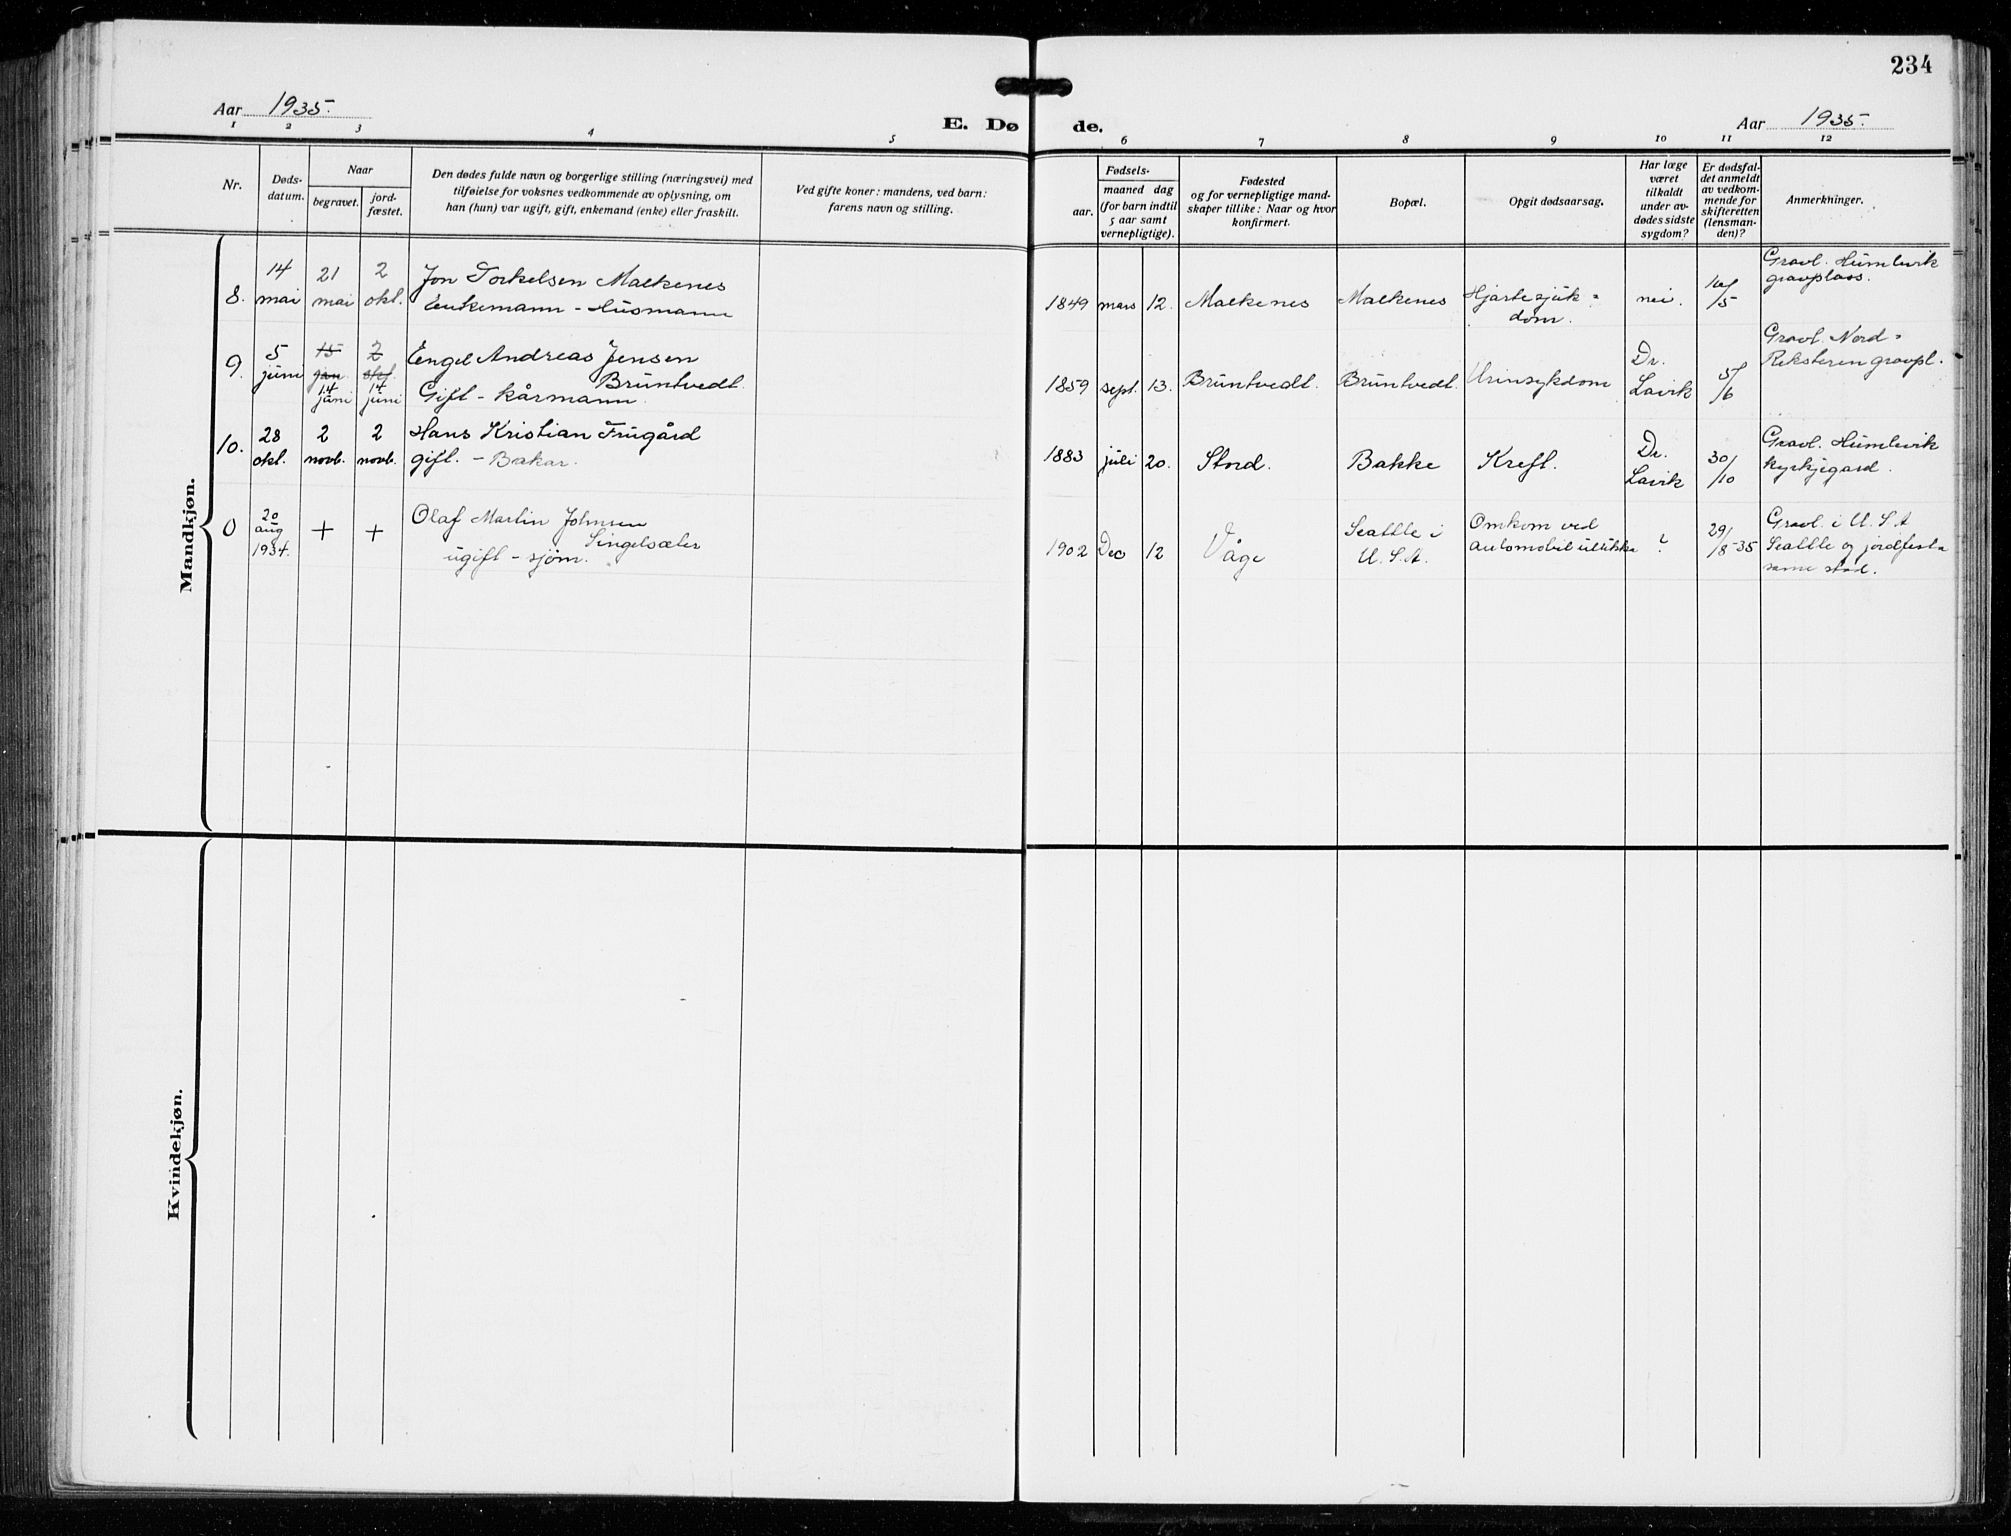 234
Aar 1935.
E. Dø
de.
Aar 1935.
1 2 3 4 5 6 7 8 9 10 11 12
Nr.
Døds-
datum.
Naar
begravet.
jord-
fæstet.
Den dødes fulde navn og borgerlige stilling (næringsvei) med
tilføielse for voksnes vedkommende av oplysning, om
han (hun) var ugift, gift, enkemand (enke) eller fraskilt.
Ved gifte koner: mandens, ved barn:
farens navn og stilling.
Fødsels-
aar.
maaned dag
(for barn indtil
5 aar samt
vernepligtige).
Fødested
og for vernepligtige mand-
skaper tillike: Naar og hvor
konfirmert.
Bopæl.
Opgit dødsaarsag.
Har læge
været
tilkaldt
under av-
dødes sidste
sygdom?
Er dødsfal-
det anmeldt
av vedkom-
mende for
skifteretten
(lensman-
den)?
Anmerkninger.
Mandkjøn.
8.
14
mai
21
mai
2
okt.
Jon Torkelsen Malkenes
Enkemann - Husmann
1849 mars 12.
Malkenes
Malkenes
Hjartesjuk=
dom.
nei.
16/5
Gravl. Humlevik
gravplass.
9.
5
juni
15
jan
14
juni
2
okt.
14
juni
Engel Andreas Jensen
Bruntvedt
Gift - kårmann.
1859 sept. 13.
Bruntvedt.
Bruntvedt
Urinsykdom
Dr.
Lavik
5/6
Gravl. Nord=
Reksteren gravpl.
10.
28
okt.
2
novb.
2
novb.
Hans Kristian Frugård
gift. - Bakar.
1883 juli 20.
Stord.
Bakke
Kreft.
Dr.
Lavik
30/10
Gravl. Humlevik
kyrkjegard.
0
20
aug
1934.
+
+
Olaf Martin Johnsen
Singelsæter
ugift - sjøm.
1902 Dec 12
Våge
Seattle i
U. S. A.
Omkom ved
automobilulukke
?
29/8-35
Gravl. i U. S. A
Seattle og jordfest
same stad.
Kvindekjøn.